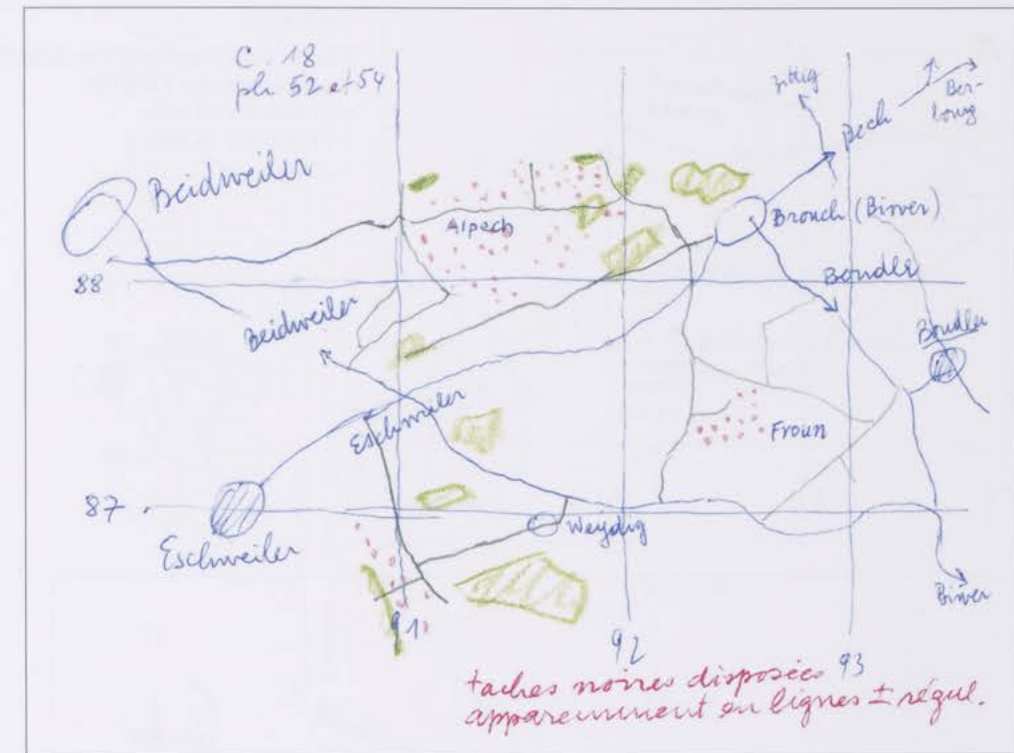 C. 18
ph. 52 et 54
Zittig
Bech
Ber-
bourg
Beidweiler
Alpech
Brouch (Biwer)
88
Boudler
Beidweiler
Boudler
Eschweiler
Froun
87
Weydig
Eschweiler
Biwer
91
92
93
taches noires disposées
apparemment en lignes ± régul.